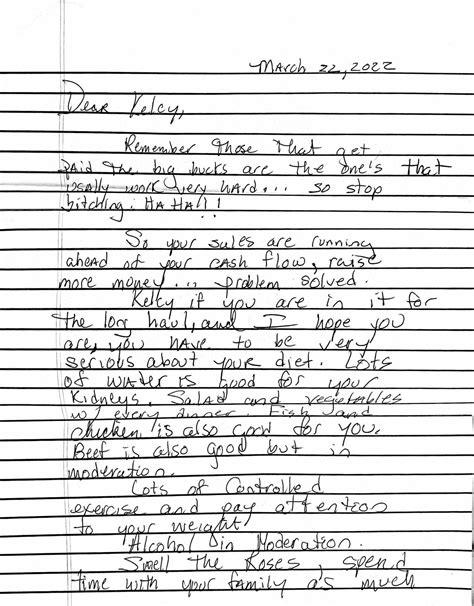 March 22, 2022
Dear Kelcy,
Remember those that get
paid the big bucks are the one's that
usally work very hard... so stop
bitching! HA HA!!
So your sales are running
ahead of your cash flow, raise
more money... problem solved.
Kelcy if you are in it for
the long haul, and I hope you
are, you have to be very
serious about your diet. Lots
of water is good for your
Kidneys. Salad and vegetables
w/ every dinner. Fish and
chicken is also good for you.
Beef is also good but in
moderation.
Lots of Controlled
exercise and pay attention
to your weight!
Alcohol in Moderation.
Smell the Roses, spend
time with your family as much